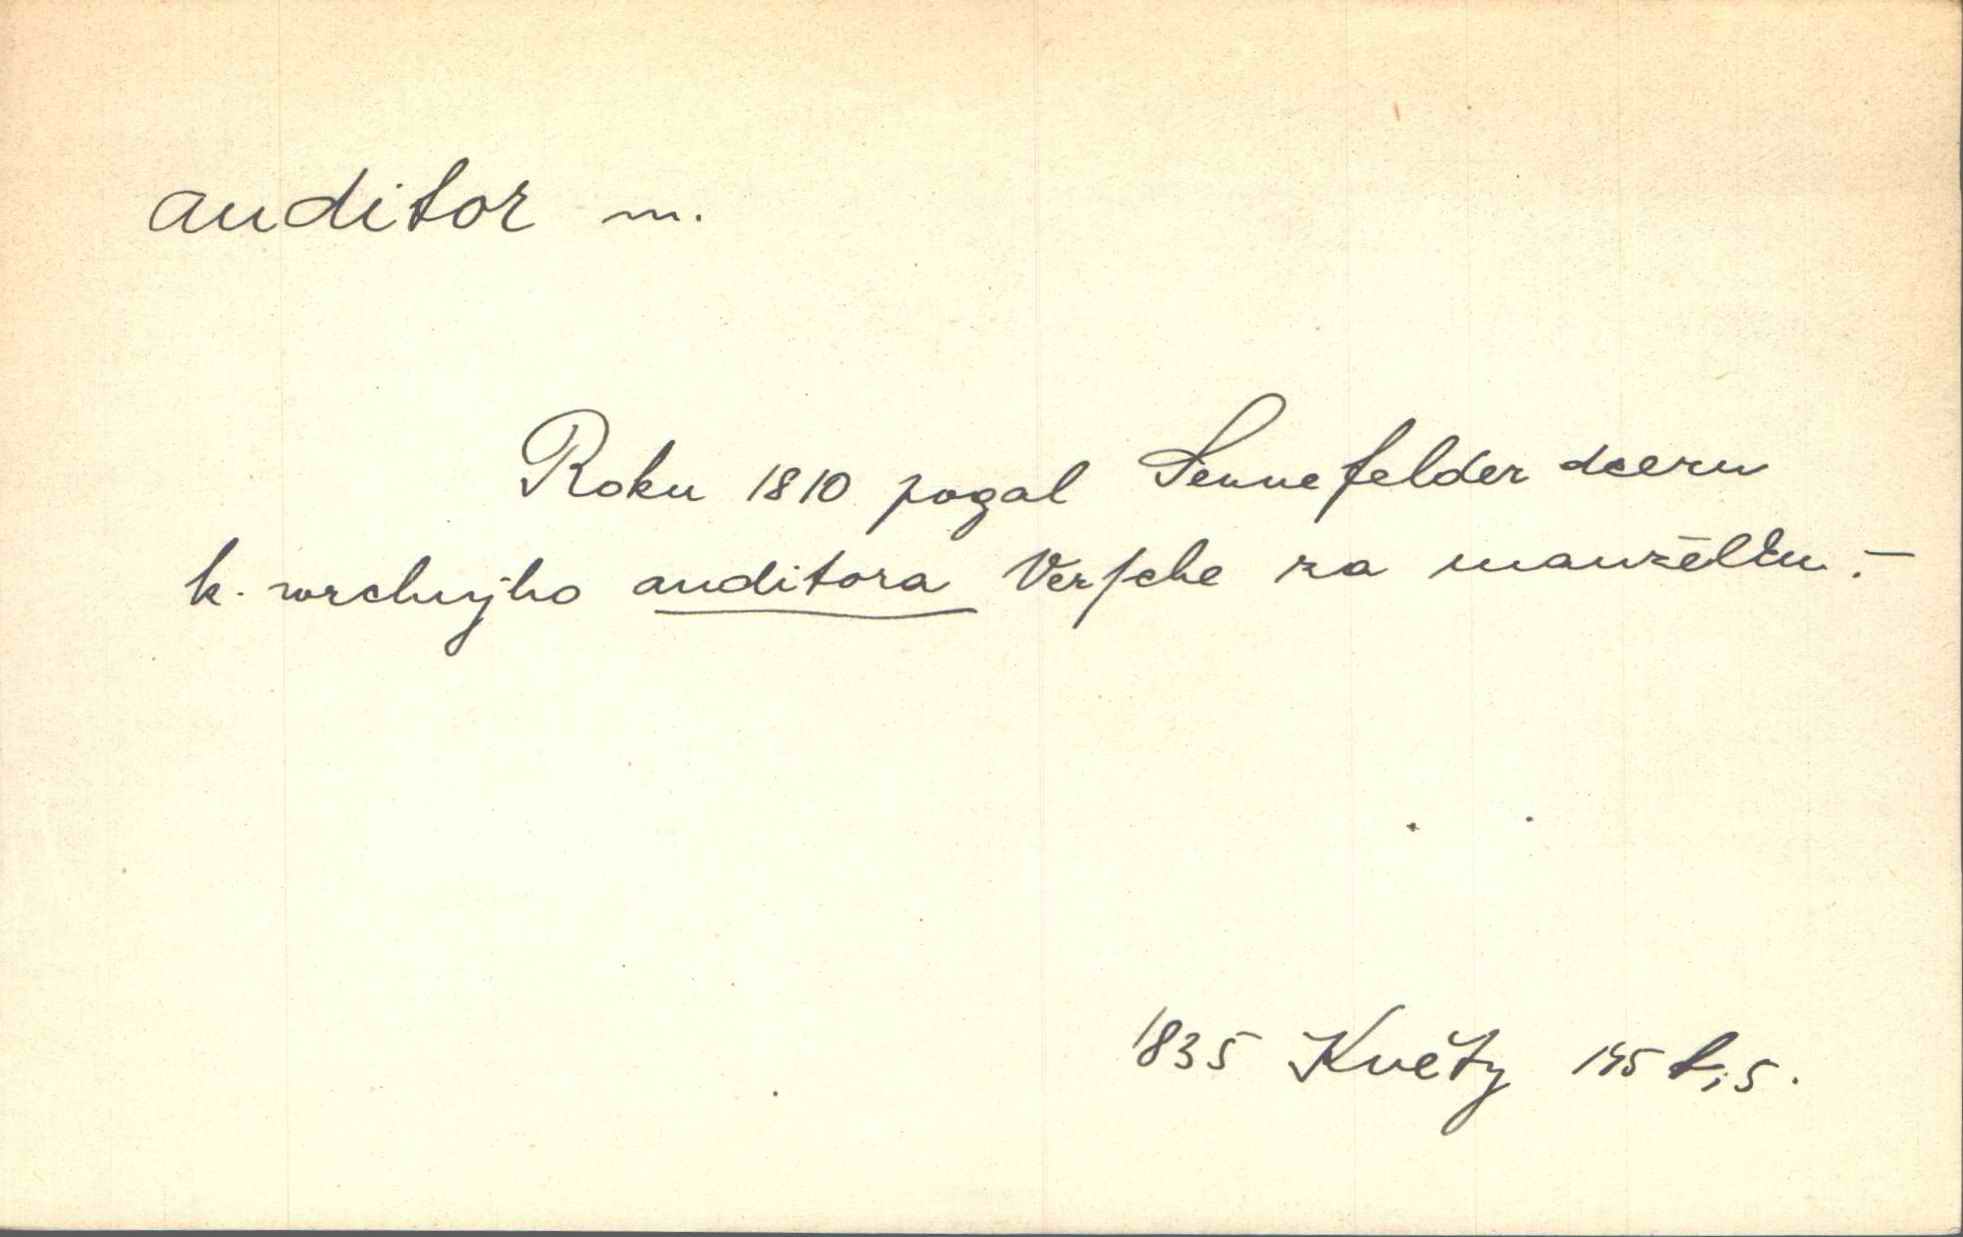 auditor m.
Roku 1810 pogal Sennefelder dceru
k. wrchnjho auditora Versche za manželku. –
1835 Květy